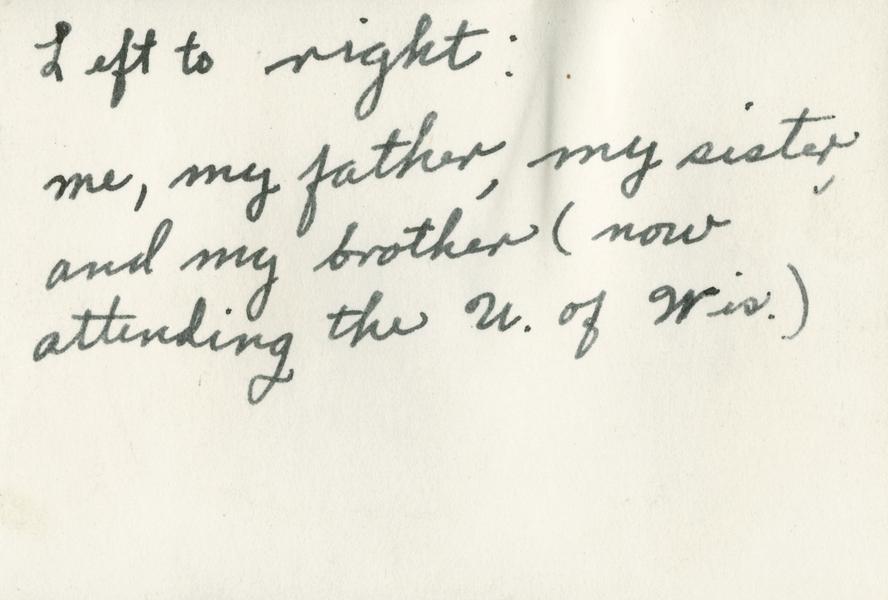 Left to right:
me, my father, my sister,
and my brother (now
attending the U. of Wis.)